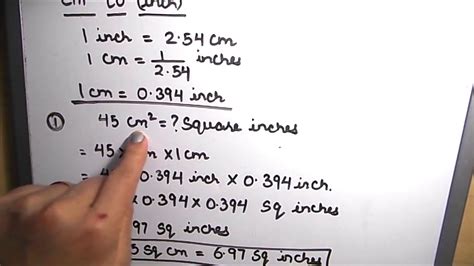 cm to (inch)
1 inch = 2.54 cm
1 cm = 1/2.54 inches
1 cm = 0.394 inch
① 45 cm² = ? Square inches
= 45 × 1 cm
0.394 inch × 0.394 inch.
× 0.394 × 0.394 Sq inches
97 Sq inches
5 Sq cm = 6.97 Sq inches